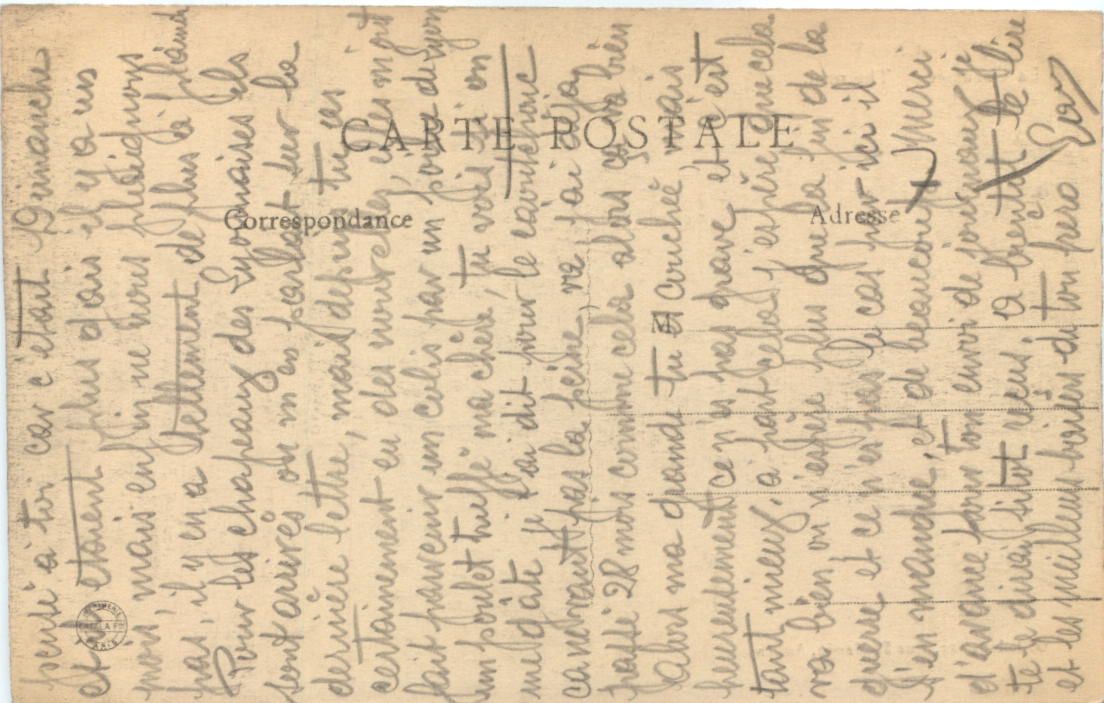 CARTE POSTALE
Correspondance
Adresse
M
pensé à toi car c'était Dimanche
et étaient plus gais il y a us
mais enfin ne nous plaignons
pas, il y en a tellement de plus à plaindre
Pour les chapeaux des Lyonnaises ils
sont arrivés on m'en parlait sur la
dernière lettre, mais depuis tu as
certainement eu des nouvelles, elles m'ont
fait parvenir un colis par un poilu de Lyon
un poulet truffé ma chère, tu vois si on
me gâte je l'ai dit pour le caoutchouc
ca ne vaut pas la peine, va j'ai déjà
passé 28 mois comme cela alors ça va bien
Alors ma grande tu es couchée, mais
heureusement ce n'est pas grave, et c'est
tant mieux, à part cela j'espère que cela
va bien, on n'espère plus que la fin de la
guerre et ce n'est pas le cas par ici il
s'en manque, et de beaucoup, Merci
d'avance pour ton envoi de journaux je
te le dirai sitôt reçus, A bientôt de te lire
et les meilleurs baisers de ton pero